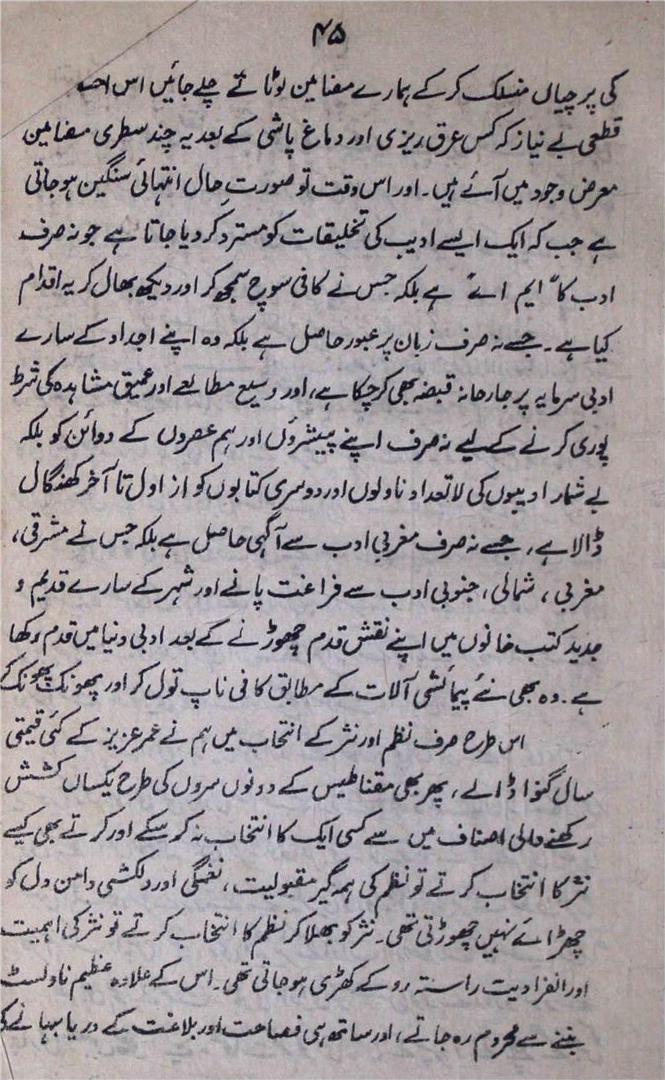 ۴۵
کی پرچیاں منسلک کرکے ہمارے مضامین لوٹاتے چلے جائیں اس
قطعی بے نیاز کہ کس عرق ریزی اور دماغ پاشی کے بعد یہ چند سطری مضامین
معرض وجود میں آئے ہیں۔ اور اس وقت تو صورتِ حال انتہائی سنگین ہو جاتی
ہے جب کہ ایک ایسے ادیب کی تخلیقات کو مسترد کر دیا جاتا ہے جو نہ صرف
ادب کا "ایم اے" ہے بلکہ جس نے کافی سوچ سمجھ کر اور دیکھ بھال کر یہ اقدام
کیا ہے۔ جسے نہ صرف زبان پر عبور حاصل ہے بلکہ وہ اپنے اجداد کے سارے
ادبی سرمایہ پر جارحانہ قبضہ بھی کر چکا ہے، اور وسیع مطالعے اور عمیق مشاہدہ کی شرط
پوری کرنے کے لیے نہ صرف اپنے پیشروٗں اور ہم عصروں کے دوائن کو بلکہ
بے شمار ادیبوں کی لاتعداد ناولوں اور دوسری کتابوں کو از اول تا آخر کھنگال
ڈالا ہے، جسے نہ صرف مغربی ادب سے آگہی حاصل ہے بلکہ جس نے مشرقی،
مغربی، شمالی، جنوبی ادب سے فراغت پانے اور شہر کے سارے قدیم و
جدید کتب خانوں میں اپنے نقش قدم چھوڑنے کے بعد ادبی دنیا میں قدم رکھا
ہے۔ وہ بھی نئے پیمائشی آلات کے مطابق کافی ناپ تول کر اور پھونک پھونک
اس طرح صرف نظم اور نثر کے انتخاب میں ہم نے عمر عزیز کے کئی قیمتی
سال گنوا ڈالے، پھر بھی مقناطیس کے دونوں سروں کی طرح یکساں کشش
رکھنے والی اصناف میں سے کسی ایک کا انتخاب نہ کر سکے اور کرتے بھی کیسے
نثر کا انتخاب کرتے تو نظم کی ہمہ گیر مقبولیت، نغمگی اور دلکشی دامن دل کو
چھڑائے نہیں چھوڑتی تھی۔ نثر کو بھلا کر نظم کا انتخاب کرتے تو نثر کی اہمیت
اور انفرادیت راستہ روکے کھڑی ہو جاتی تھی۔ اس کے علاوہ عظیم ناولسٹ
بننے سے محروم رہ جاتے، اور ساتھ ہی فصاحت اور بلاغت کے دریا بہانے کی